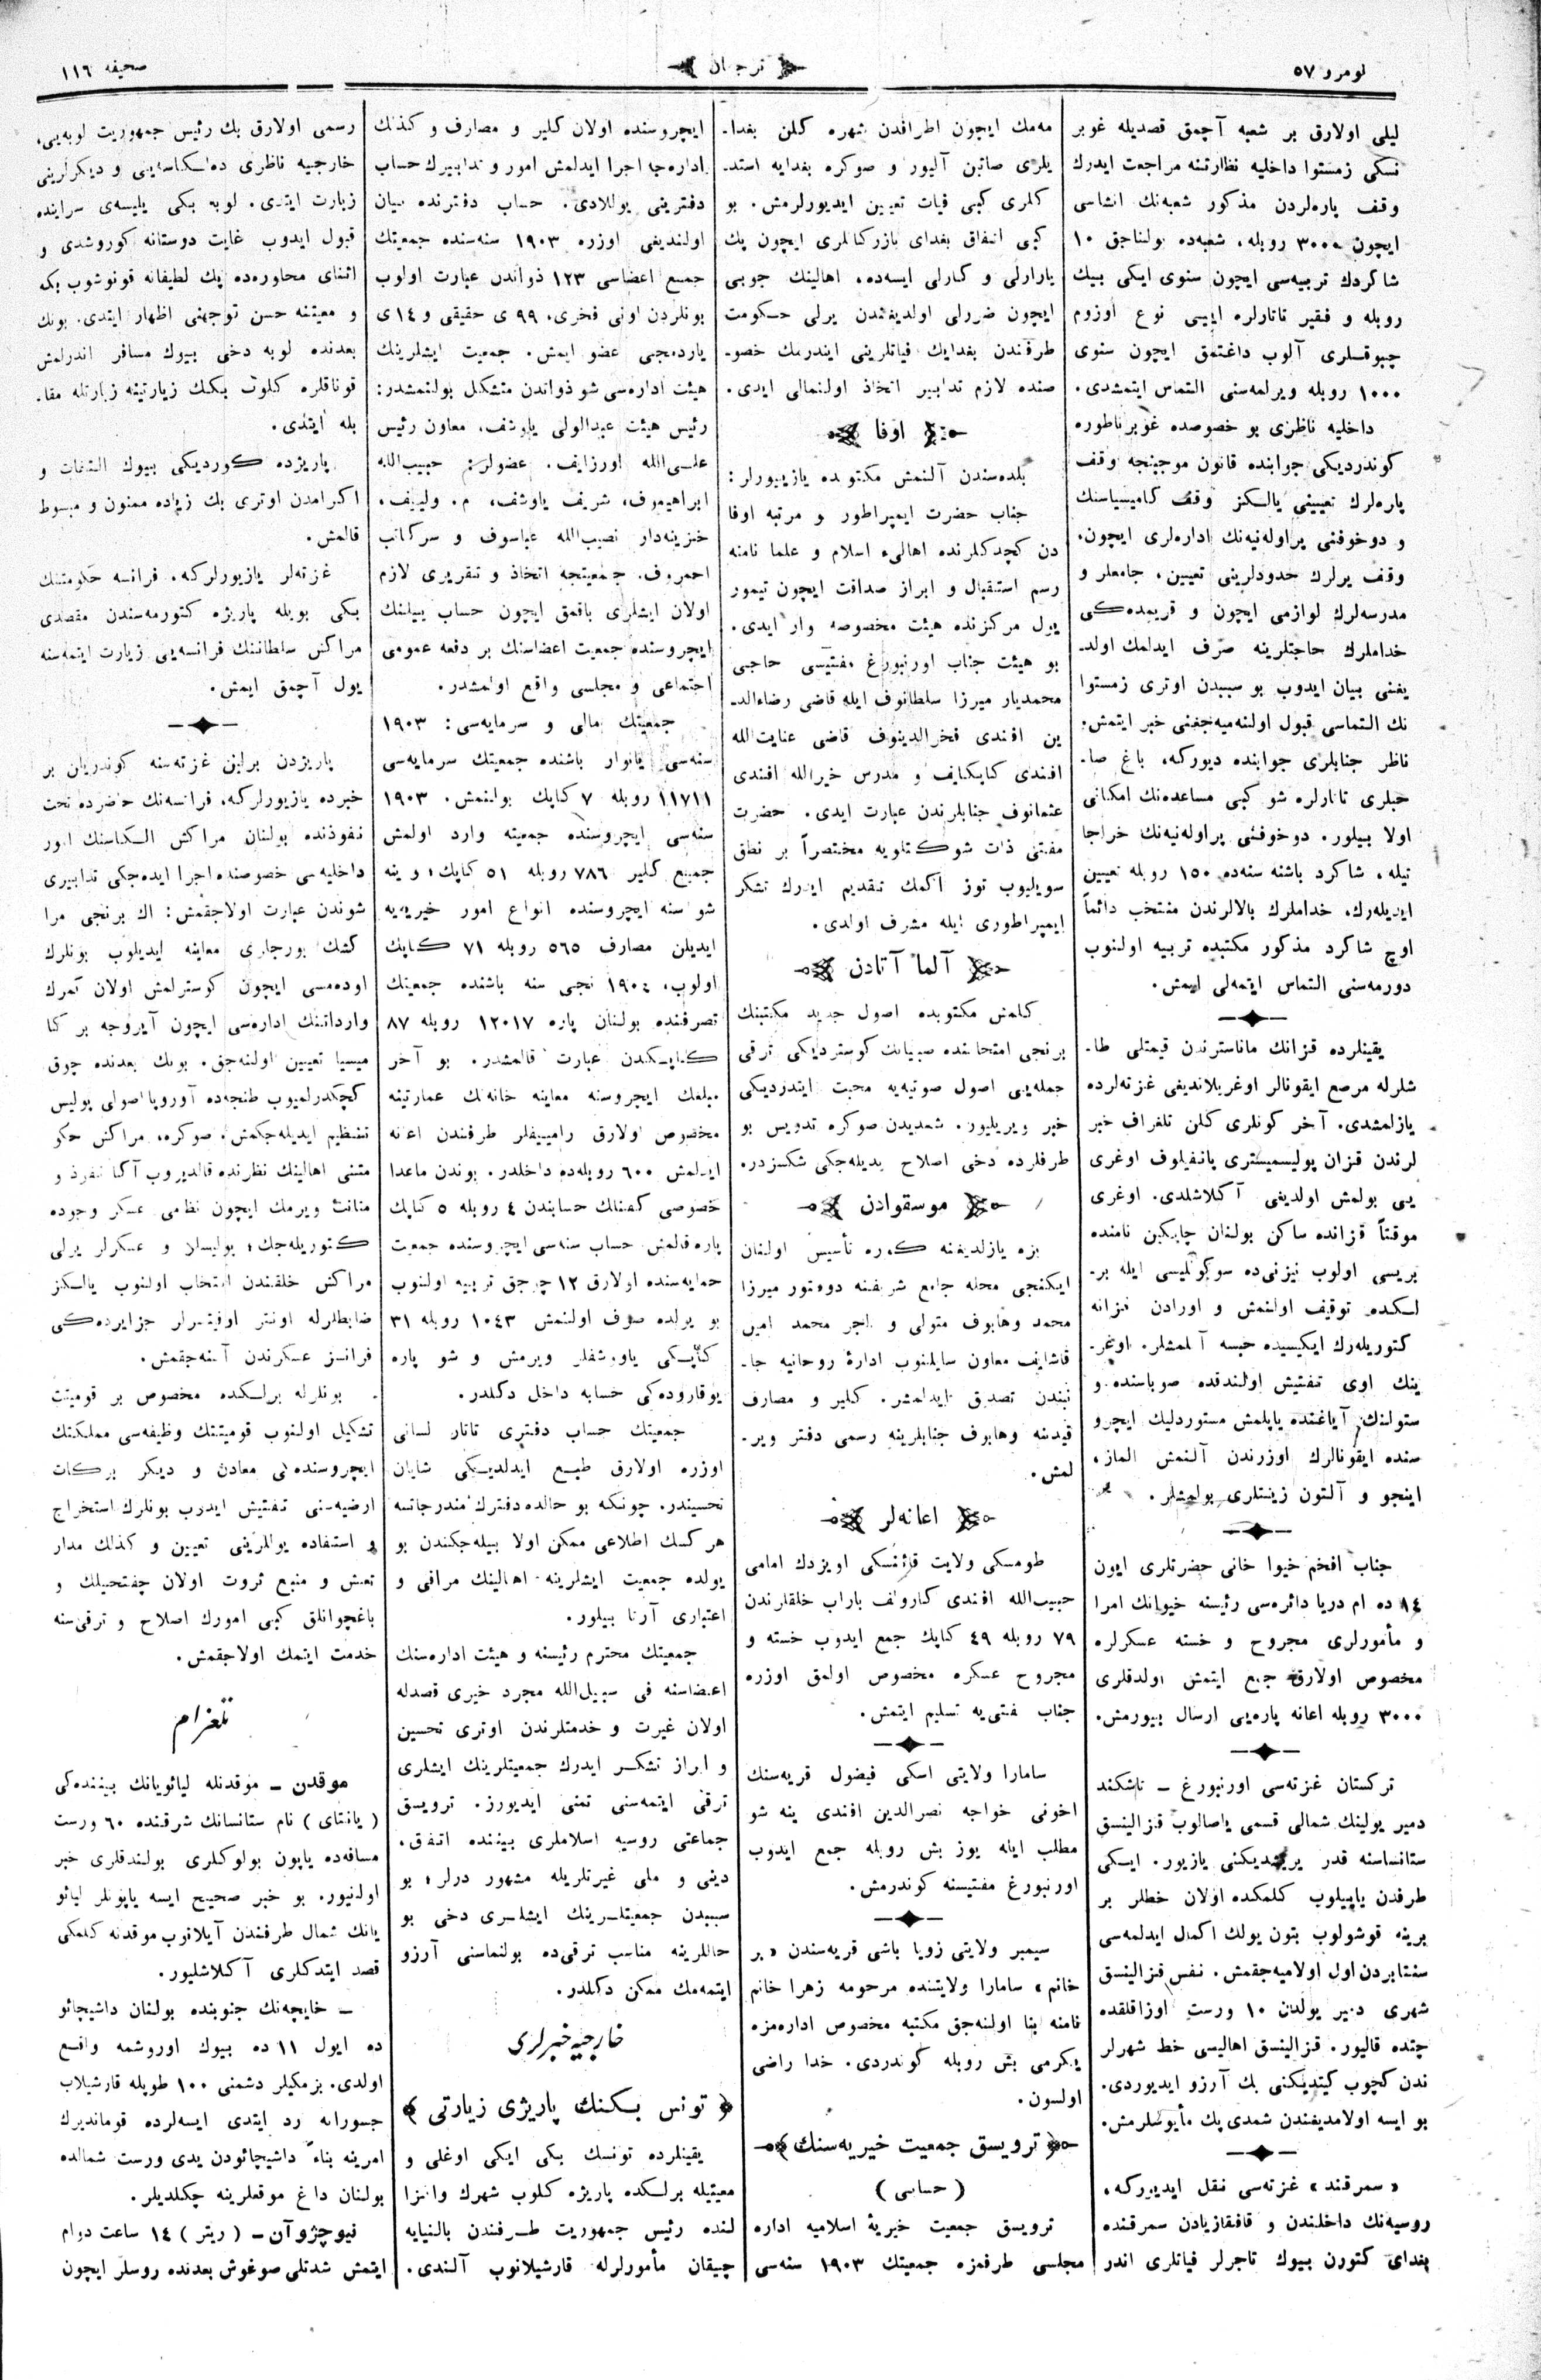 لومرو ٥٧
ترجمان
صحیفه ١١٦
لیلی اولارق بر شعبه آچمق قصدیله غوبر
نسکی زمستوا داخلیه نظارتنه مراجعت ایدرك
وقف پاره‌لردن مذکور شعبه‌نك انشاسی
ایچون ٣٠٠٠ روبله، شعبه‌ده بولناجق ١٠
شاکردك تربیه‌سی ایچون سنوی ایکی بیك
روبله و فقیر تاتارلره ایییی نوع اوزوم
چبوقلری آلوب داغتمق ایچون سنوی
١٠٠٠ روبله ویرلمه‌سنی التماس ایتمشدی.
داخلیه ناظری بو خصوصده غوبرناطوره
کوندردیکی جوابنده قانون موجبنجه وقف
پاره‌لرك تعیینی یالکز وقف کامیسیاسنك
و دوخوفنی پراوله‌نیه‌نك اداره‌لری ایچون،
وقف یرلرك حدودلرینی تعیین، جامعلر و
مدرسه‌لرك لوازمی ایچون و قریمده‌کی
خداملرك حاجتلرینه صرف ایدلمك اولد-
یغنی بیان ایدوب بو سببدن اوتری زمستوا
نك التماسی قبول اولنه‌میه‌جغنی خبر ایتمش.
ناظر جنابلری جوابنده دیورکه، باغ صا-
حبلری تاتارلره شو کبی مساعده‌نك امکانی
اولا بیلور. دوخوفنی پراوله‌نیه‌نك خراجا
تیله، شاکرد باشنه سنه‌ده ١٥٠ روبله تعیین
ایدیله‌رك، خداملرك بالالرندن منتخب دائماً
اوچ شاکرد مذکور مکتبده تربیه اولنوب
دورمه‌سنی التماس ایتمه‌لی ایمش.
یقینلرده قزانك ماناسترندن قیمتلی طا-
شلرله مرصع ایقونالر اوغریلاندیغی غزته‌لرده
یازلمشدی. آخر کونلری کلن تلغراف خبر
لرندن قزان پولیسمیستری پانفیلوف اوغری
یی بولمش اولدیغی آکلاشلدی. اوغری
موقتاً قزانده ساکن بولنان چایکین نامنده
بریسی اولوب نیزنی‌ده سوکولیسی ایله بر-
لکده توقیف اولنمش و اورادن قزانه
کتوریله‌رك ایکیسیده حبسه آلمشلر. اوغر-
ینك اوی تفتیش اولندقده صوباسنده و
ستولنك آیاغنده یاپلمش مستوردلیك ایچرو
سنده ایقونالرك اوزرندن آلنمش الماز،
اینجو و آلتون زینتلری بولمشلر.
جناب افخم خیوا خانی حضرتلری ایون
١٤ ده ام دریا دائره‌سی رئیسنه خیوانك امرا
و مأمورلری مجروح و خسته عسکرلره
مخصوص اولارق جمع ایتمش اولدقلری
٣٠٠٠ روبله اعانه پاره‌یی ارسال بیورمش.
ترکستان غزته‌سی اورنبورغ - تاشکند
دمیر یولینك شمالی قسمی یاصالوب قزالینسق
ستانساسنه قدر یریشدیکنی یازیور. ایسکی
طرفدن یاپیلوب کلمکده اولان خطلر بر
برینه قوشولوب بتون یولك اکمال ایدلمه‌سی
سنتابردن اول اولامیه‌جقمش. نفس قزالینسق
شهری دمیر یولدن ١٠ ورست اوزاقلقده
چتده قالیور. قزالینسق اهالیسی خط شهرلر
ندن کچوب کیتدیکنی بك آرزو ایدیوردی.
بو ایسه اولامدیغندن شمدی پك مأیوسلرمش.
«سمرقند» غزته‌سی نقل ایدیورکه،
روسیه‌نك داخلندن و قافقازیادن سمرقنده
بغدای کتورن بیوك تاجرلر فیاتلری اندر
مه‌مك ایچون اطرافدن شهره کلن بغدا-
یلری صاتین آلیور و صوکره بغدایه استد-
کلری کبی فیات تعیین ایدیورلرمش. بو
کبی اتفاق بغدای بازرکانلری ایچون پك
یارارلی و کارلی ایسه‌ده، اهالینك جوبی
ایچون ضررلی اولدیغندن یرلی حکومت
طرفندن بغدایك فیاتلرینی ایندرمك خصو-
صنده لازم تدابیر اتخاذ اولنمالی ایدی.
اوفا
بلده‌سندن آلنمش مکتوبده یازییورلر:
جناب حضرت ایمپراطور و مرتبه اوفا
دن کچدکلرنده اهالیء اسلام و علما نامنه
رسم استقبال و ابراز صداقت ایچون تیمور
یول مرکزنده هیئت مخصوصه وار ایدی.
بو هیئت جناب اورنبورغ مفتیسی حاجی
محمدیار میرزا سلطانوف ایله قاضی رضاءالد-
ین افندی فخرالدینوف قاضی عنایت‌الله
افندی کاپکایف و مدرس خیرالله افندی
عثمانوف جنابلرندن عبارت ایدی. حضرت
مفتی ذات شوکتلویه مختصراً بر نطق
سویلیوب توز اکمك تقدیم ایدرك تشکر
ایمپراطوری ایله مشرف اولدی.
آلما آتادن
کلمش مکتوبده اصول جدید مکتبنك
برنجی امتحاننده صبیانك کوستردیکی ترقی
جمله‌یی اصول صوتیه‌یه محبت ایتدردیکی
خبر ویریلیور. شمدیدن صوکره تدویس بو
طرفلرده دخی اصلاح یدیله‌جکی شکسزدر.
موسقوادن
بزه یازلدیغنه کوره تأسیس اولنان
ایکنجی محله جامع شریفنه دوقتور میرزا
محمد وهابوف متولی و تاجر محمد امین
قاشایف معاون سایلنوب ادارهٔ روحانیه جا-
نبندن تصدیق ایدلمشر. کلیر و مصارف
قیدنه وهابوف جنابلرینه رسمی دفتر ویر-
لمش.
اعانه‌لر
طومسکی ولایت قائنسکی اویزدك امامی
حبیب‌الله افندی کارونف باراب خلقلرندن
٧٩ روبله ٤٩ کاپك جمع ایدوب خسته و
مجروح عسکره مخصوص اولمق اوزره
جناب مفتی‌یه تسلیم ایتمش.
سامارا ولایتی اسکی فیضول قریه‌سنك
اخونی خواجه نصرالدین افندی ینه شو
مطلب ایله یوز بش روبله جمع ایدوب
اورنبورغ مفتیسنه کوندرمش.
سیمبر ولایتی زویا باشی قریه‌سندن «بر
خانم» سامارا ولایتنده مرحومه زهرا خانم
نامنه بنا اولنه‌جق مکتبه مخصوص اداره‌مزه
یکرمی بش روبله کوندردی. خدا راضی
اولسون.
ترویسق جمعیت خیریه‌سنك
(حسابی)
ترویسق جمعیت خیریهٔ اسلامیه اداره
مجلسی طرفمزه جمعیتك ١٩٠٣ سنه‌سی
ایچروسنده اولان کلیر و مصارف و کذلك
اداره‌جه اجرا ایدلمش امور و تدابیرك حساب
دفترینی یوللادی. حساب دفترنده بیان
اولندیغی اوزره ١٩٠٣ سنه‌سنده جمعیتك
جمیع اعضاسی ١٢٣ ذواتدن عبارت اولوب
بونلردن اونی فخری، ٩٩ ی حقیقی و ١٤ ی
یاردمجی عضو ایمش. جمعیت ایشلرینك
هیئت اداره‌سی شو ذواتدن متشکل بولنمشدر:
رئیس هیئت عبدالولی یاوشف، معاون رئیس
علی‌الله اورزایف. عضولر: حبیب‌الله
ابراهیموف، شریف یاوشف، م. ولییف،
خزینه‌دار نصیب‌الله عباسوف و سرکاتب
احمروف. جمعیتجه اتخاذ و تقریری لازم
اولان ایشلری باقمق ایچون حساب ییلنك
ایچروسنده جمعیت اعضاسنك بر دفعه عمومی
اجتماعی و مجلسی واقع اولمشدر.
جمعیتك مالی و سرمایه‌سی: ١٩٠٣
سنه‌سی یانوار باشنده جمعیتك سرمایه‌سی
١١٧١١ روبله ٧ کاپك بولنمش. ١٩٠٣
سنه‌سی ایچروسنده جمعیته وارد اولمش
جمیع کلیر ٧٨٦ روبله ٥١ کاپك؛ و ینه
شو سنه ایچروسنده انواع امور خیریه‌یه
ایدیلن مصارف ٥٦٥ روبله ٧١ کاپك
اولوب، ١٩٠٤ نجی سنه باشنده جمعیتك
تصرفنده بولنان پاره ١٢٠١٧ روبله ٨٧
کاپیکدن عبارت قالمشدر. بو آخر
مبلغك ایچروسنه معاینه خانه‌نك عمارتینه
مخصوص اولارق رامییفلر طرفندن اعانه
ایدلمش ٦٠٠ روبله‌ده داخلدر. بوندن ماعدا
خصوصی کفننك حسابندن ٤ روبله ٥ کاپك
پاره قالمش. حساب سنه‌سی ایچروسنده جمعیت
حمایه‌سنده اولارق ١٢ چوجق تربیه اولنوب
بو یولده صرف اولنمش ١٠٤٣ روبله ٣١
کاپیکی یاوشفلر ویرمش و شو پاره
یوقاروده‌کی حسابه داخل دکلدر.
جمعیتك حساب دفتری تاتار لسانی
اوزره اولارق طبع ایدلدیکی شایان
تحسیندر. چونکه بو حالده دفترك مندرجاتنه
هر کسك اطلاعی ممکن اولا بیله‌جکندن بو
یولده جمعیت ایشلرینه اهالینك مراقی و
اعتباری آرتا بیلور.
جمعیتك محترم رئیسنه و هیئت اداره‌سنك
اعضاسنه فی سبیل‌الله مجرد خیری قصدله
اولان غیرت و خدمتلرندن اوتری تحسین
و ابراز تشکر ایدرك جمعیتلرینك ایشلری
ترقی ایتمه‌سنی تمنی ایدیورز. ترویسق
جماعتی روسیه اسلاملری بیننده اتفق،
دینی و ملی غیرتلریله مشهور درلر؛ بو
سببدن جمعیتلرینك ایشلری دخی بو
حاللرینه مناسب ترقی‌ده بولنماسنی آرزو
ایتمه‌مك ممکن دکلدر.
خارجیه خبرلری
تونس بکنك پاریژی زیارتی
یقینلرده تونسك بکی ایکی اوغلی و
معیتیله برلکده پاریژه کلوب شهرك واغزا
لنده رئیس جمهوریت طرفندن بالنیابه
چیقان مأمورلرله قارشیلانوب آلندی.
رسمی اولارق بك رئیس جمهوریت لوبه‌یی،
خارجیه ناظری ده‌لکاسه‌یی و دیکرلرینی
زیارت ایتدی. لوبه بکی یلیسه‌ی سراینده
قبول ایدوب غایت دوستانه کوروشدی و
اثنای محاوره‌ده پك لطیفانه قونوشوب بکه
و معیتنه حسن توجهنی اظهار ایتدی. بونك
بعدنده لوبه دخی بیوك مسافر اندرلمش
قوناقلره کلوب بکك زیارتینه زیارتله مقا-
بله ایتدی.
پاریزده کوردیکی بیوك التفات و
اکرامدن اوتری بك زیاده ممنون و مبسوط
قالمش.
غزته‌لر یازیورلرکه، فرانسه حکومتنك
بکی بویله پاریزه کتورمه‌سندن مقصدی
مراکش سلطاننك فرانسه‌یی زیارت ایتمه‌سنه
یول آچمق ایمش.
پاریزدن برلین غزته‌سنه کوندریلن بر
خبرده یازیورلرکه، فرانسه‌نك حاضرده تحت
نفوذنده بولنان مراکش الکاسنك امور
داخلیه‌سی خصوصنده اجرا ایده‌جکی تدابیری
شوندن عبارت اولاجقمش: اك برنجی مرا
کشك بورجلری معاینه ایدیلوب بونلرك
اوده‌مسی ایچون کوسترلمش اولان کمرك
وارداتنك اداره‌سی ایچون آیروجه بر کا
میسیا تعیین اولنه‌جق. بونك بعدنده چوق
کچکدرلمیوب طنجه‌ده آوروپا اصولی پولیس
تنظیم ایدیله‌جکمش. صوکره، مراکش حکو
متنی اهالینك نظرنده قالدیروب آکا نفوذ و
متانت ویرمك ایچون نظامی عسکر وجوده
کتوریله‌جك؛ پولیسلر و عسکرلر یرلی
مراکش خلقندن انتخاب اولنوب یالکز
ضابطلرله اونتر اوفیترلر جزایرده‌کی
فرانسز عسکرندن آلنه‌جقمش.
بونلرله برلکده مخصوص بر قومیتت
تشکیل اولنوب قومیتتك وظیفه‌سی مملکتك
ایچروسنده‌کی معادن و دیکر برکات
ارضیه‌سنی تفتیش ایدوب بونلرك استخراج
و استفاده یوللرینی تعیین و کذلك مدار
تعیش و منبع ثروت اولان چفتجیلك و
باغچوانلق کبی امورك اصلاح و ترقی‌سنه
خدمت ایتمك اولاجقمش.
تلغرام
موقدن - موقدنله لیائویانك بیننده‌کی
(یانتای) نام ستانسانك شرقنده ٦٠ ورست
مسافه‌ده یاپون بولوکلری بولندقلری خبر
اولنیور. بو خبر صحیح ایسه یاپونلر لیائو
یانك شمال طرفندن آیلانوب موقدنه کلمکی
قصد ایتدکلری آکلاشلیور.
- خایچه‌نك جنوبنده بولنان داشیچائو
ده ایول ١١ ده بیوك اوروشمه واقع
اولدی. بزمکیلر دشمنی ١٠٠ طوپله قارشیلاب
جسورانه رد ایتدی ایسه‌لرده قوماندیرك
امرینه بناءً داشیچائودن یدی ورست شمالده
بولنان داغ موقعلرینه چکلدیلر.
نیوچژوآن - (ریتر) ١٤ ساعت دوام
ایتمش شدتلی صوغوش بعدنده روسلر ایچون